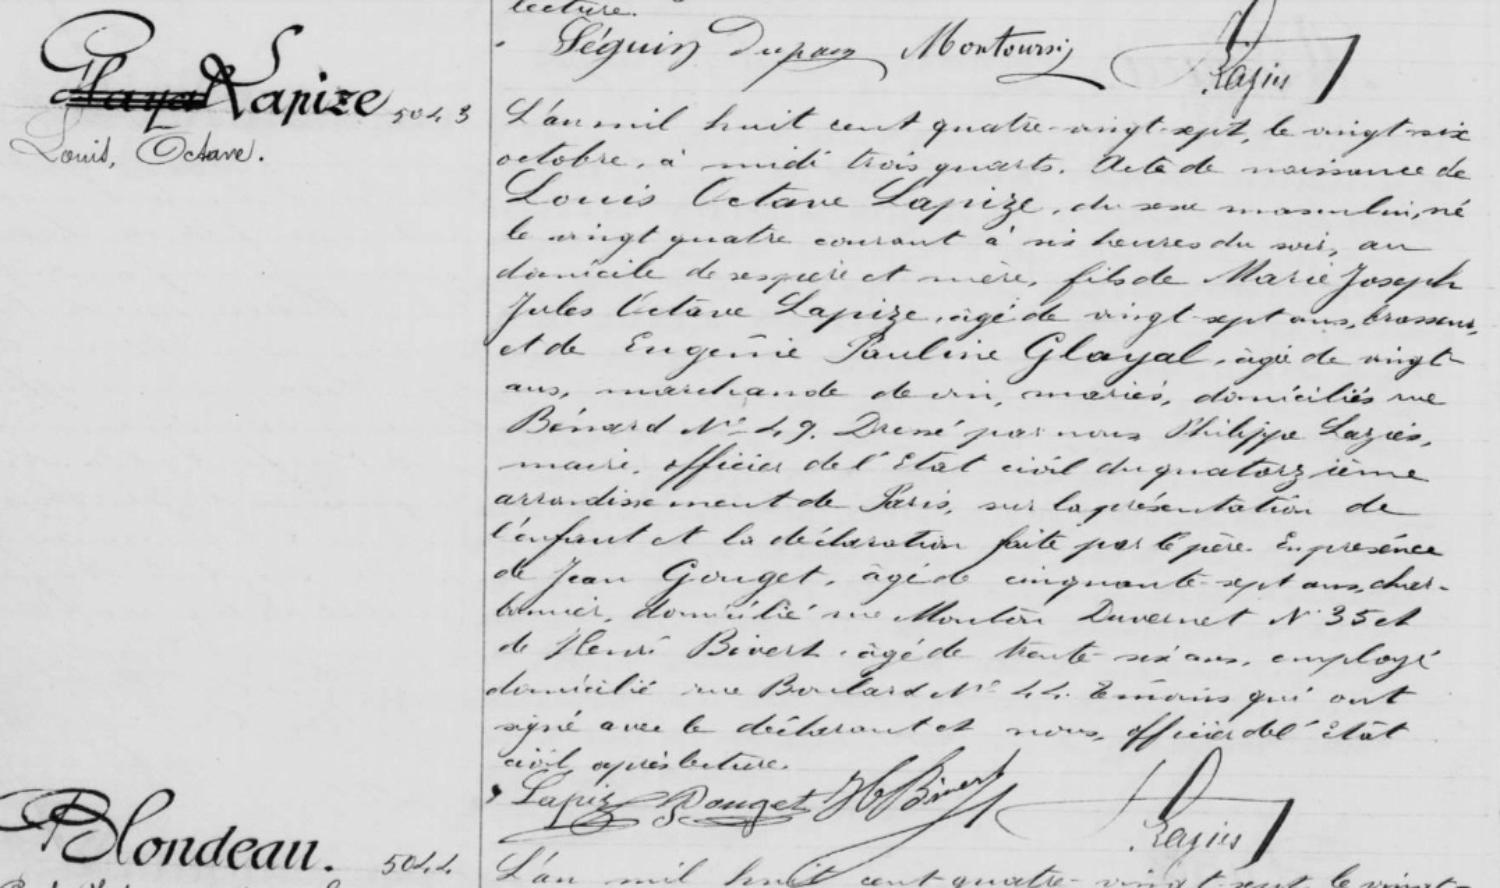 lecture.
Séguin Dupam Montoursij Lazies
Glayal Lapize 5043
Louis, Octave.
L'an mil huit cent quatre-vingt-sept, le vingt-six
octobre, à midi trois quarts. Acte de naissance de
Louis Octave Lapize, du sexe masculin, né
le vingt quatre courant à six heures du soir, au
domicile de ses père et mère, fils de Marie Joseph
Jules Octave Lapize, âgé de vingt-sept ans, brasseur,
et de Eugénie Pauline Glayal, âgée de vingt-
ans, marchande de vin, mariés, domiciliés rue
Bénard Nº 49. Dressé par nous Philippe Lazies,
maire, officier de l'Etat civil du quatorzième
arrondissement de Paris, sur la présentation de
l'enfant et la déclaration faite par le père. En présence
de Jean Gouget, âgé de cinquante-sept ans, char-
bonnier, domicilié rue Mouton Duvernet N° 35 et
de Henri Bivert, âgé de trente-six ans, employé
domicilié rue Boulard Nº 44. Témoins qui ont
signé avec le déclarant et nous, officier de l'état
civil après lecture.
Lapize Gouget H Bivert Lazies
Blondeau. 5044
L'an mil huit cent quatre-vingt-sept, le vingt-